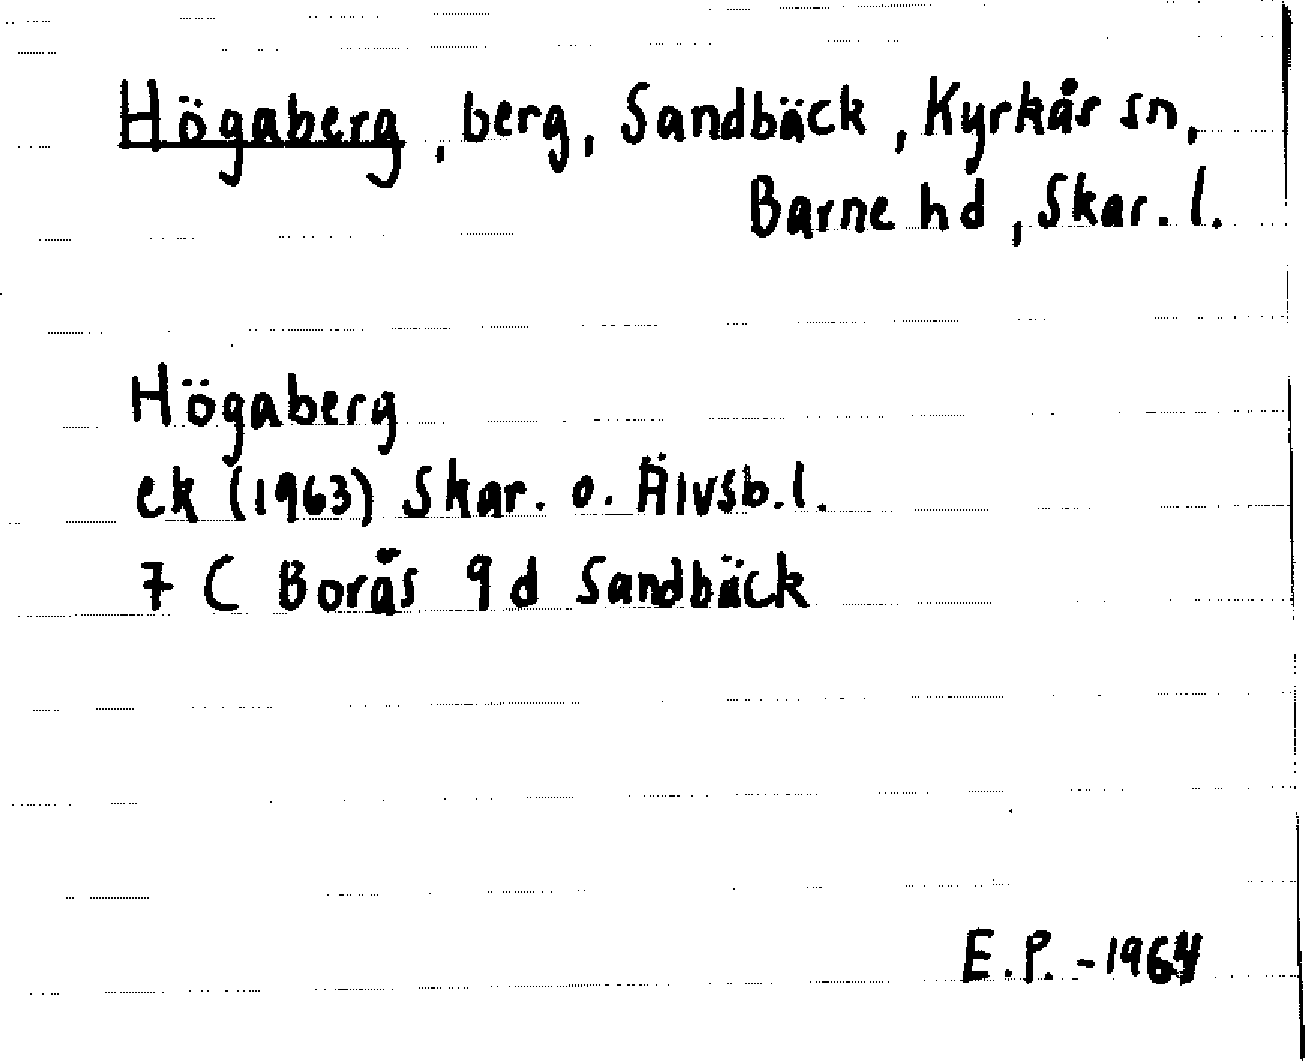 Högaberg, berg, Sandbäck, Kyrkås sn,
Barne hd, Skar. l.
Högaberg
ek (1963) Skar. o. Älvsb. l.
7 C Borås 9 d Sandbäck
E.P. - 1964